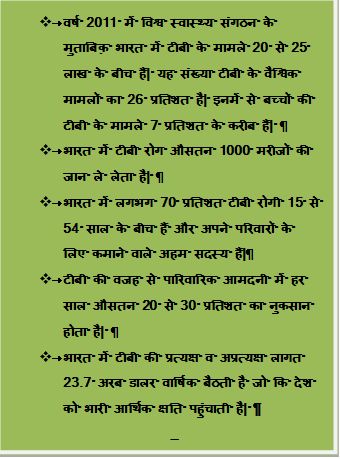 ❖ वर्ष 2011 में विश्व स्वास्थ्य संगठन के
मुताबिक़ भारत में टीबी के मामले 20 से 25
लाख के बीच हैं| यह संख्या टीबी के वैश्विक
मामलों का 26 प्रतिशत है| इनमें से बच्चों की
टीबी के मामले 7 प्रतिशत के करीब हैं| ¶
❖ भारत में टीबी रोग औसतन 1000 मरीजों की
जान ले लेता है| ¶
❖ भारत में लगभग 70 प्रतिशत टीबी रोगी 15 से
54 साल के बीच हैं और अपने परिवारों के
लिए कमाने वाले अहम सदस्य हैं|¶
❖ टीबी की वजह से पारिवारिक आमदनी में हर
साल औसतन 20 से 30 प्रतिशत का नुकसान
होता है| ¶
❖ भारत में टीबी की प्रत्यक्ष व अप्रत्यक्ष लागत
23.7 अरब डालर वार्षिक बैठती है जो कि देश
को भारी आर्थिक क्षति पहुंचाती है| ¶